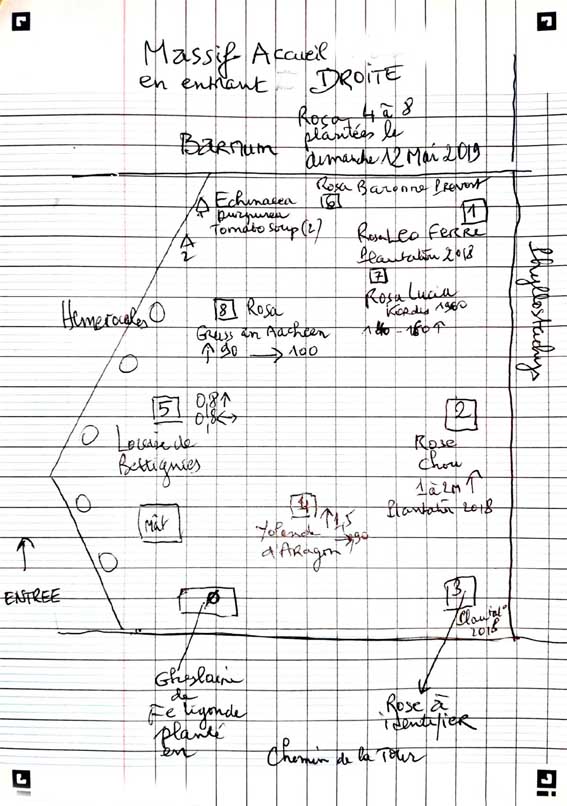 Massif Accueil
en entrant DROITE
Rosa 4 à 8
plantées le
dimanche 12 Mai 2019
Barnum
Rosa Baronne Prevost
6
Echinacea
purpurea
Tomato Soup (2)
2
1
Rosa Leo FERRE
Plantation 2018
7
Rosa Lucia
Kordes 1960
Phyllostachys
Hémerocalles
8 Rosa
Gruss an Aachen
↑ 90 → 100
140 - 160 ↑
5 0,8 ↑
0,8 ↔
Louise de
Bettignies
2
Rose
Chou
1 à 2M ↑
Plantation 2018
Mât
4 ↑ 1,5
Yolande → 90
d'ARagon
↑
ENTREE
0
3
Plantat°
2018
Ghislaine
de
Feligonde
planté
en
Rose à
identifier
Chemin de la Tour